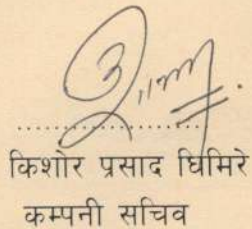 किशोर प्रसाद घिमिरे
कम्पनी सचिव